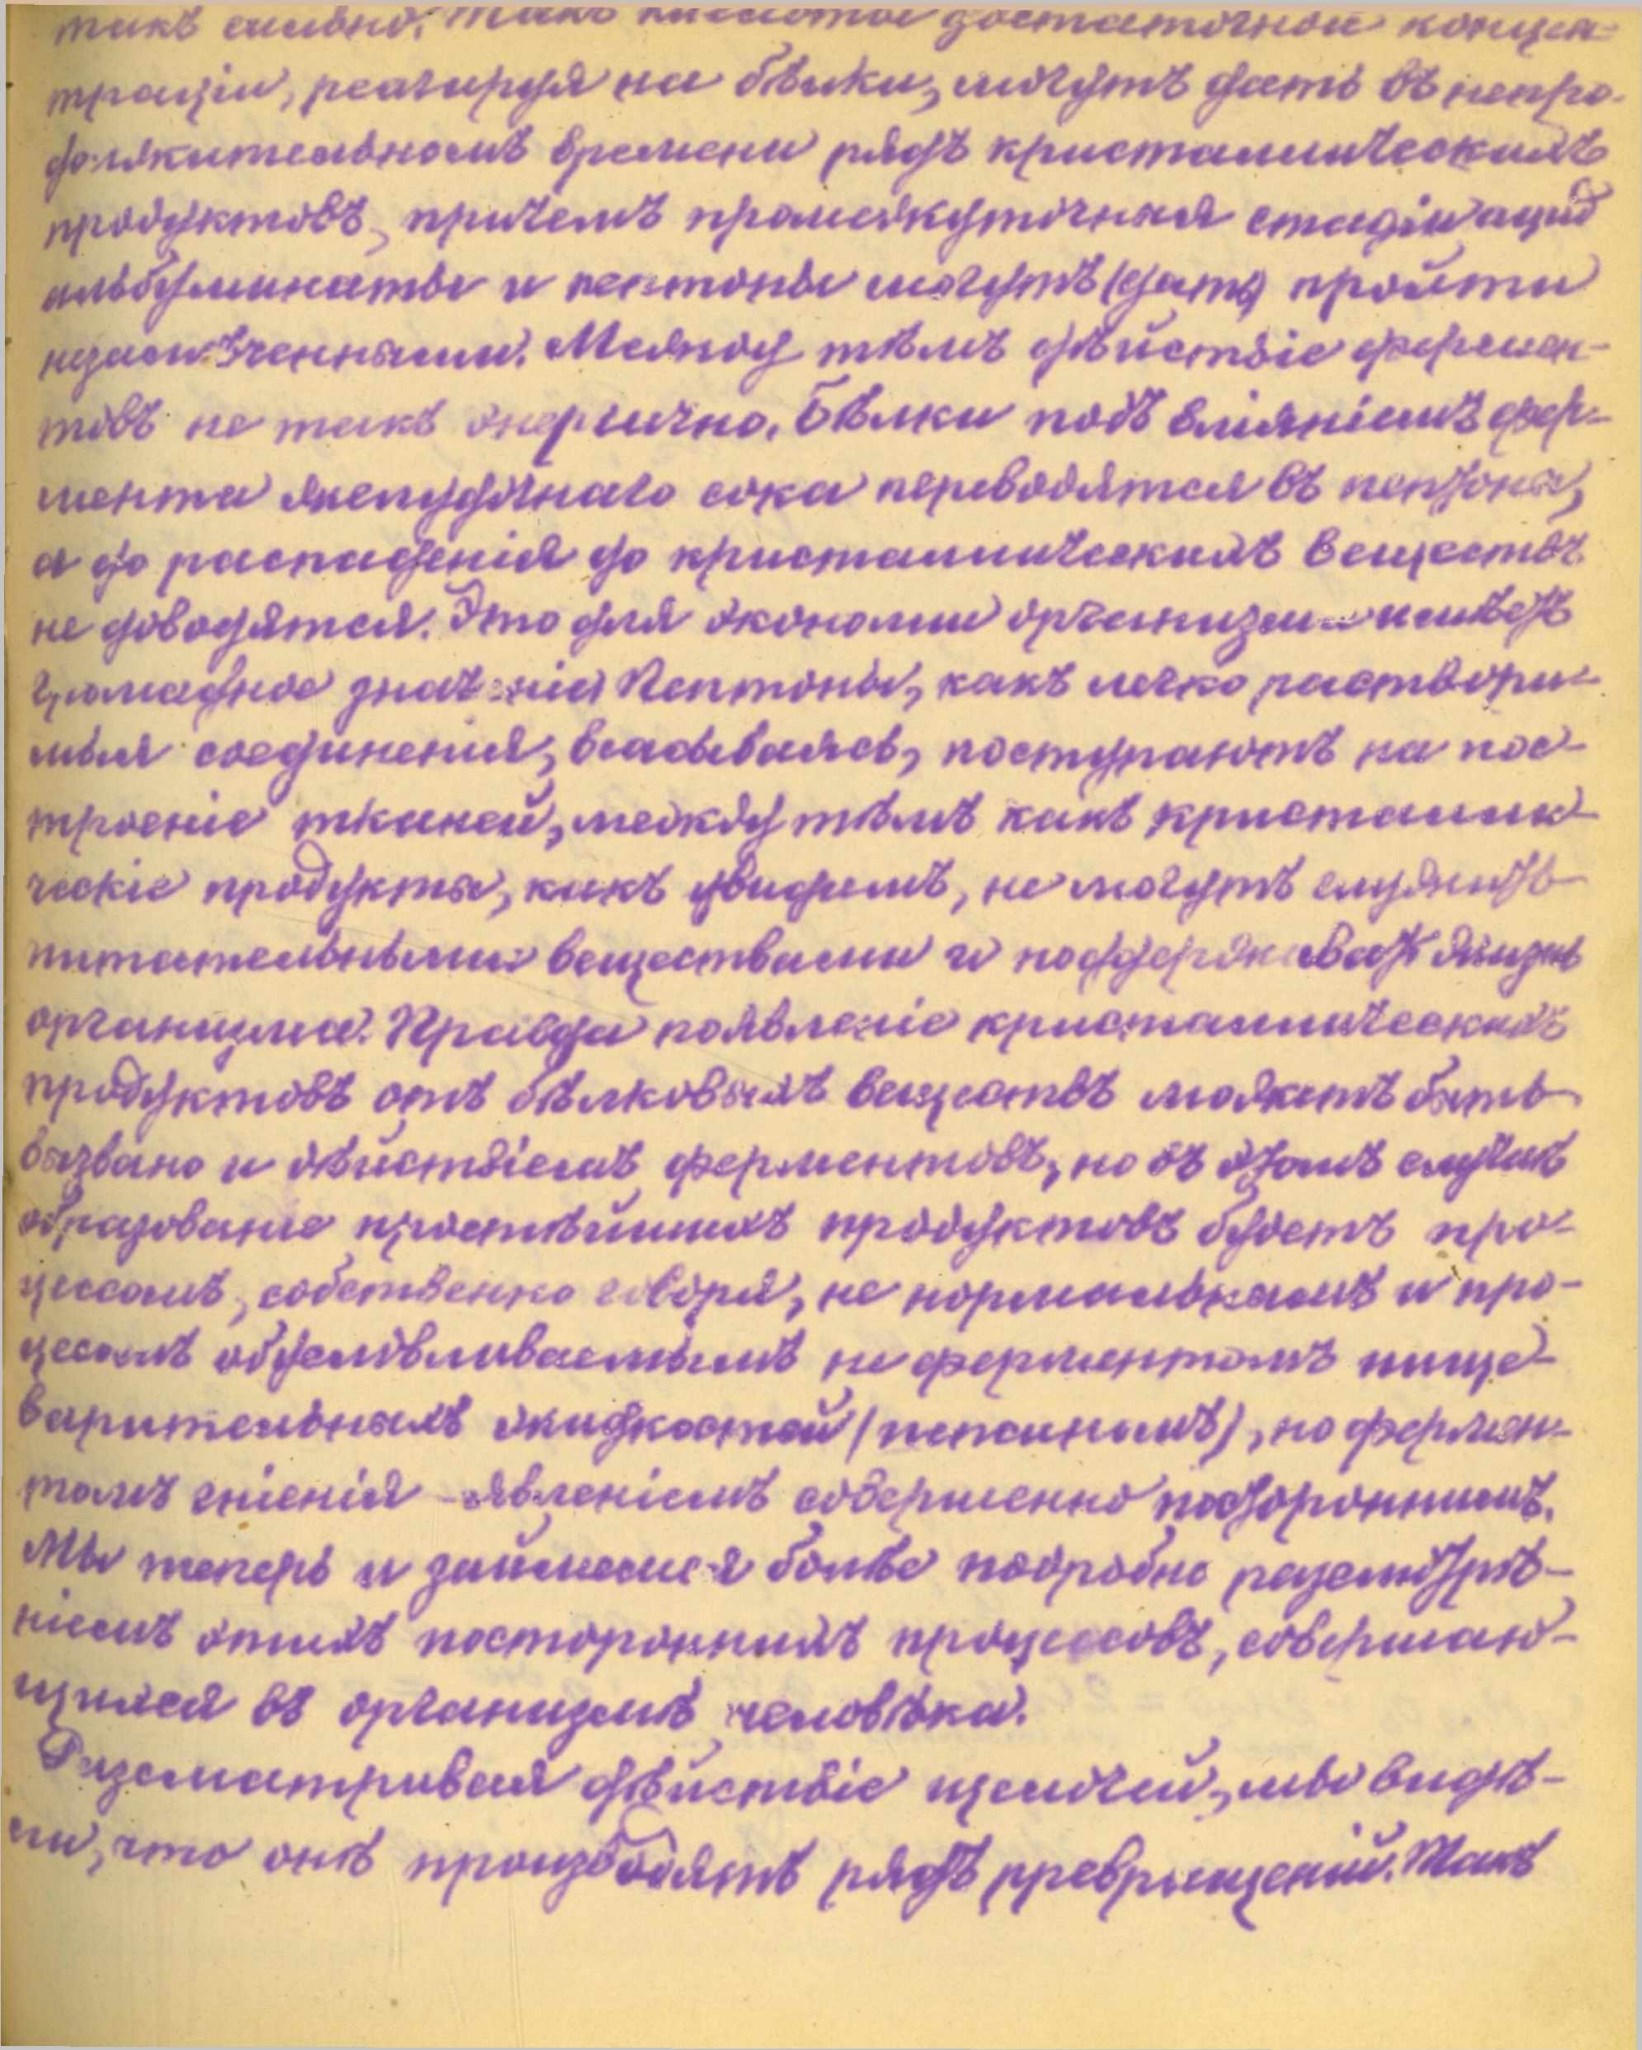 такъ сильно. Такъ кислотою достаточной концен-
траціи, реагируя на бѣлки, могутъ дать въ непро-
должительномъ времени рядъ кристаллическихъ
продуктовъ, причемъ промежуточныя стадіи ацид
альбуминаты и пептоны могутъ (дать) пройти
незамѣченными. Между тѣмъ дѣйствіе фермен-
товъ не такъ энергично. Бѣлки подъ вліяніемъ фер-
мента желудочнаго сока переводятся въ пептоны,
а до распаденія до кристаллическихъ веществъ
не доводятся. Это для экономіи организма имѣетъ
громадное значеніе Пептоны, какъ легко раствори-
мыя соединенія, всасываясь, поступаютъ на пос-
троеніе тканей, между тѣмъ какъ кристалли-
ческіе продукты, какъ увидимъ, не могутъ служить
питательными веществами и поддерживать жизнь
организма. Правда появленіе кристаллическихъ
продуктовъ отъ бѣлковыхъ веществъ можетъ быть
вызвано и дѣйствіемъ ферментовъ, но въ этомъ случаѣ
образованіе простѣйшихъ продуктовъ будетъ про-
цессомъ, собственно говоря, не нормальнымъ и про-
цесомъ обусловливаемымъ не ферментомъ пище-
варительныхъ жидкостей (пепсиномъ), но фермен-
томъ гніенія - явленіемъ совершенно постороннимъ.
Мы теперь и займемся болѣе подробно разсмотрѣ-
ніемъ этихъ постороннихъ процессовъ, совершаю-
щихся въ организмѣ человѣка.
Разсматривая дѣйствіе щелочей, мы видѣ-
ли, что онѣ производятъ рядъ превращеній. Такъ